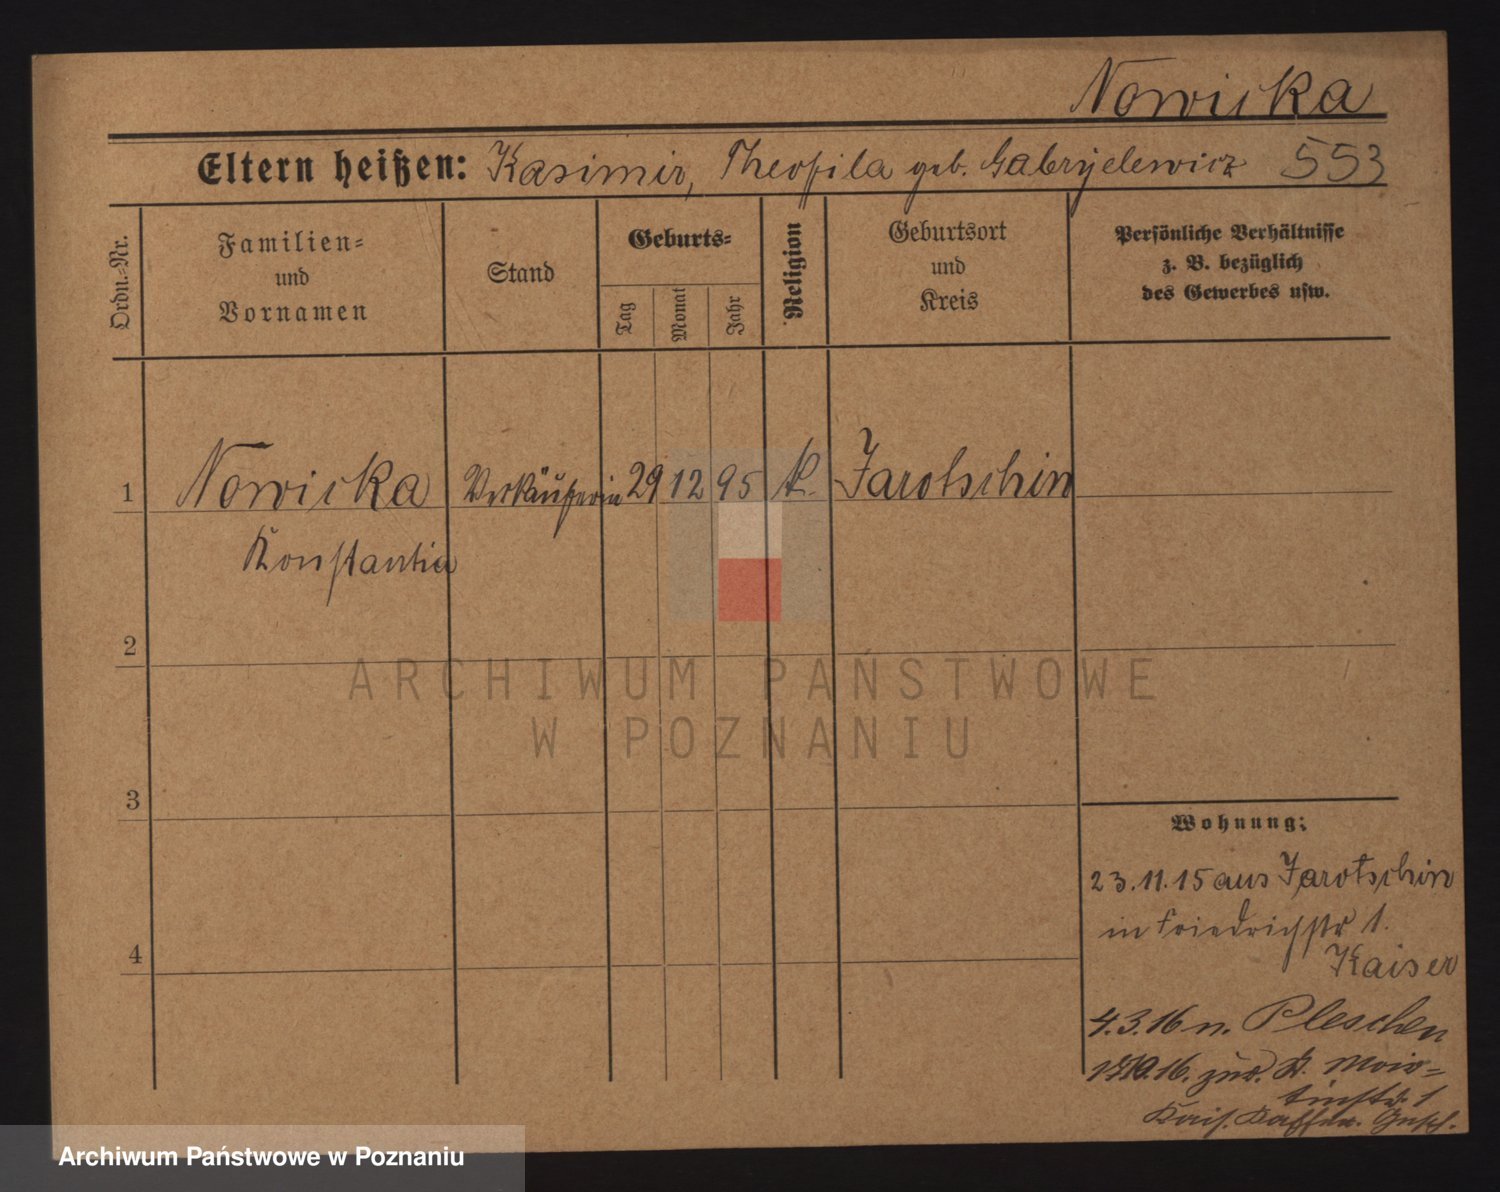 Nowicka
Eltern heißen: Kasimir, Theofila geb. Gabryelewicz 553
Ordn.=Nr.
Familien=
und
Vornamen
Stand
Geburts=
Tag
Monat
Jahr
Religion
Geburtsort
und
Kreis
Persönliche Verhältnisse
z. B. bezüglich
des Gewerbes usw.
1 Nowicka Verkäuferin 29 12 95 k. Jarotschin
Konstantia
2
ARCHIWUM PAŃSTWOWE
W POZNANIU
3
Wohnung:
23.11.15 aus Jarotschin
in Friedrichstr 1.
4
Kaiser
4.3.16 n. Pleschen
16. zur.
1
Kais. Kaffee. Gesch.
Archiwum Państwowe w Poznaniu